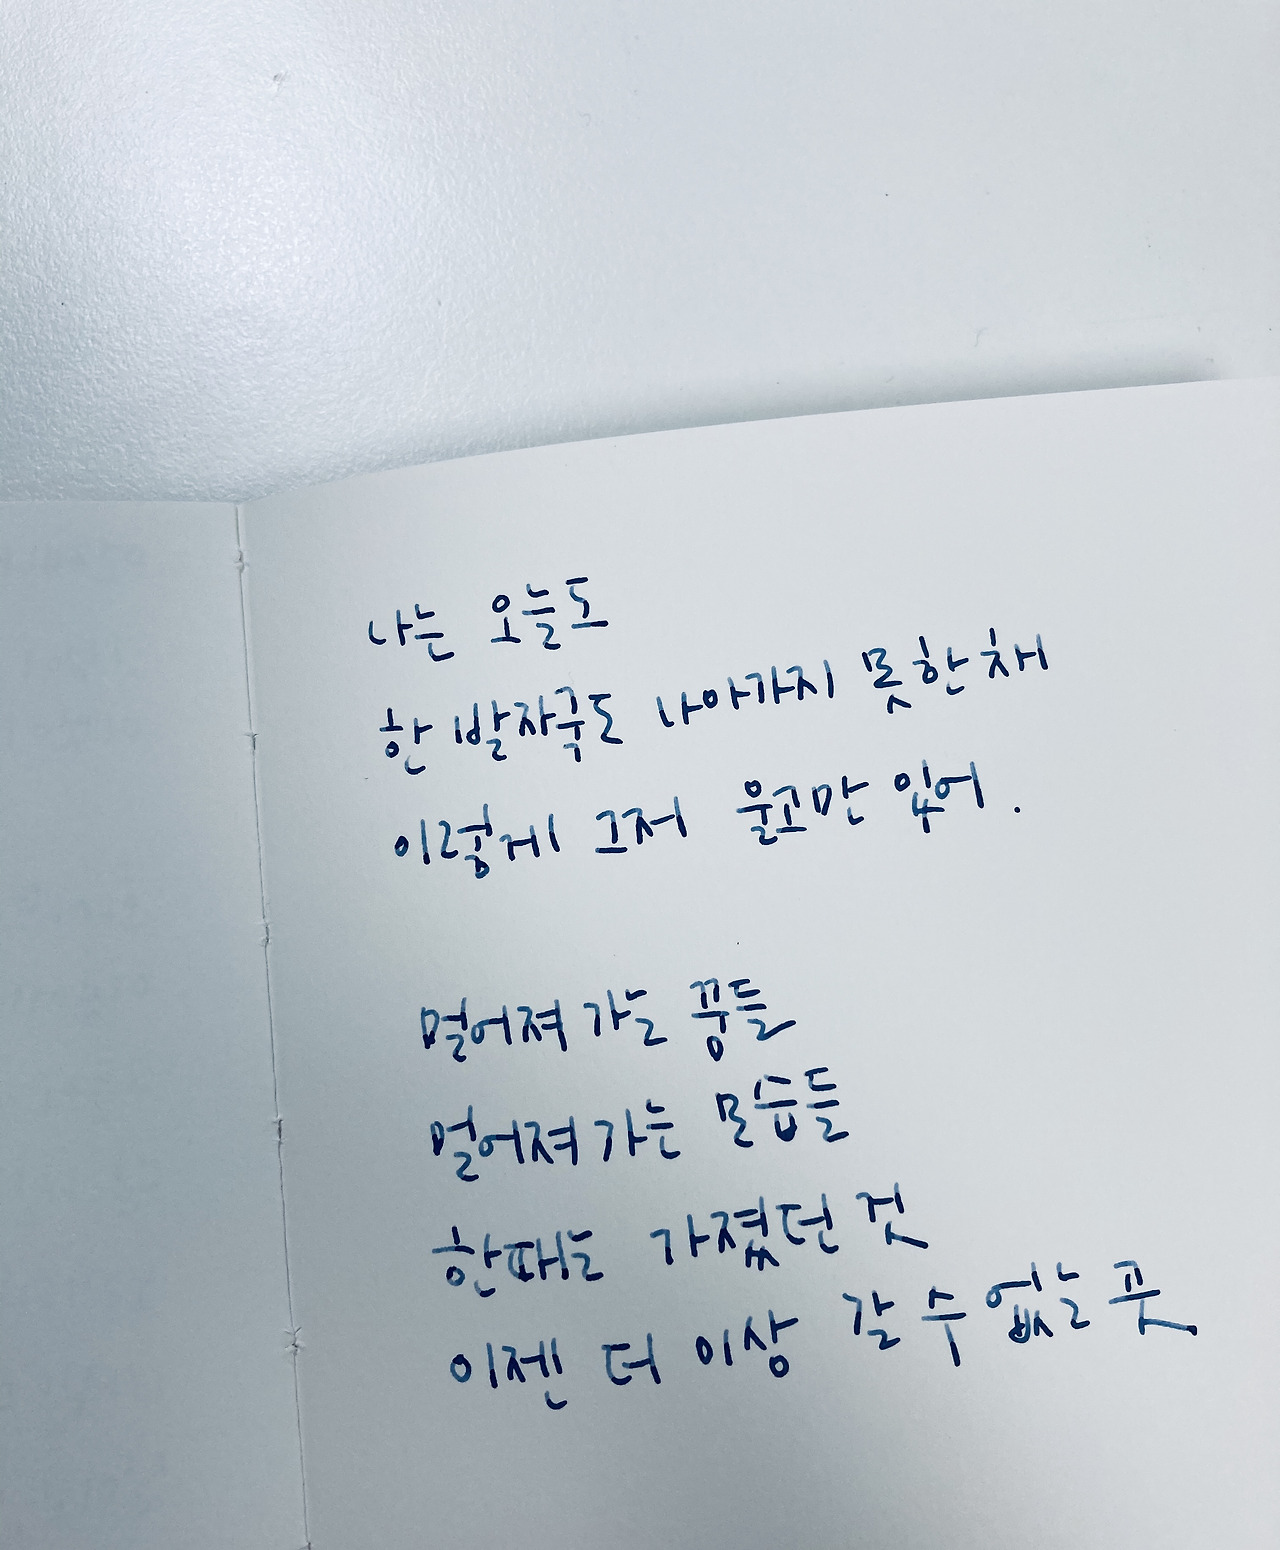 나는 오늘도
한 발자국도 나아가지 못한 채
이렇게 그저 울고만 있어.
멀어져 가는 꿈들
멀어져 가는 모습들
한때는 가졌던 것
이젠 더 이상 갈 수 없는 곳